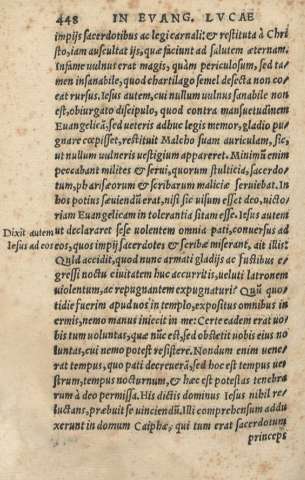 448 IN EVANG. LVCAE
impijs sacerdotibus ac legi carnali: & restituta à Chri
sto, iam auscultat ijs, quæ faciunt ad salutem æternam.
Infame vulnus erat magis, quàm periculosum, sed ta-
men insanabile, quod chartilago semel desecta non co-
eat rursus. Iesus autem, cui nullum vulnus sanabile non
est, obiurgato discipulo, quod contra mansuetudinem
Euangelicã, sed ueteris adhuc legis memor, gladio pu-
gnare cœpisset, restituit Malcho suam auriculam, sic,
ut nullum uulneris uestigium appareret. Minimũ enim
peccabant milites & serui, quorum stulticia, sacerdo-
tum, pharisæorum & scribarum malicie seruiebat. In
hos potius sæuiẽdũ erat, nisi sic uisum esset deo, uicto-
riam Euangelicam in tolerantia sitam esse. Iesus autem
Dixit autem
ut declararet sese uolentem omnia pati, conuersus ad
Iesus ad eos
eos, quos impij sacerdotes & scribæ miserant, ait illis:
Quid accidit, quod nunc armati gladijs ac fustibus e-
gressi noctu ciuitatem huc accurritis, ueluti latronem
uiolentum, ac repugnantem expugnaturi? Quũ quo-
tidie fuerim apud uos in templo, expositus omnibus in
ermis, nemo manus iniecit in me: Certe eadem erat uo-
bis tum voluntas, quæ nũc est, sed obstetit uobis eius uo
luntas, cui nemo potest resistere. Nondum enim uene-
rat tempus, quo pati decreuerã, sed hoc est tempus ue-
strum, tempus nocturnum, & hæc est potestas tenebra
rum à deo permissa. His dictis dominus Iesus nihil re-
luctans, præbuit se uinciendũ. Illi comprehensum addu
xerunt in domum Caiphæ, qui tum erat sacerdotum
princeps